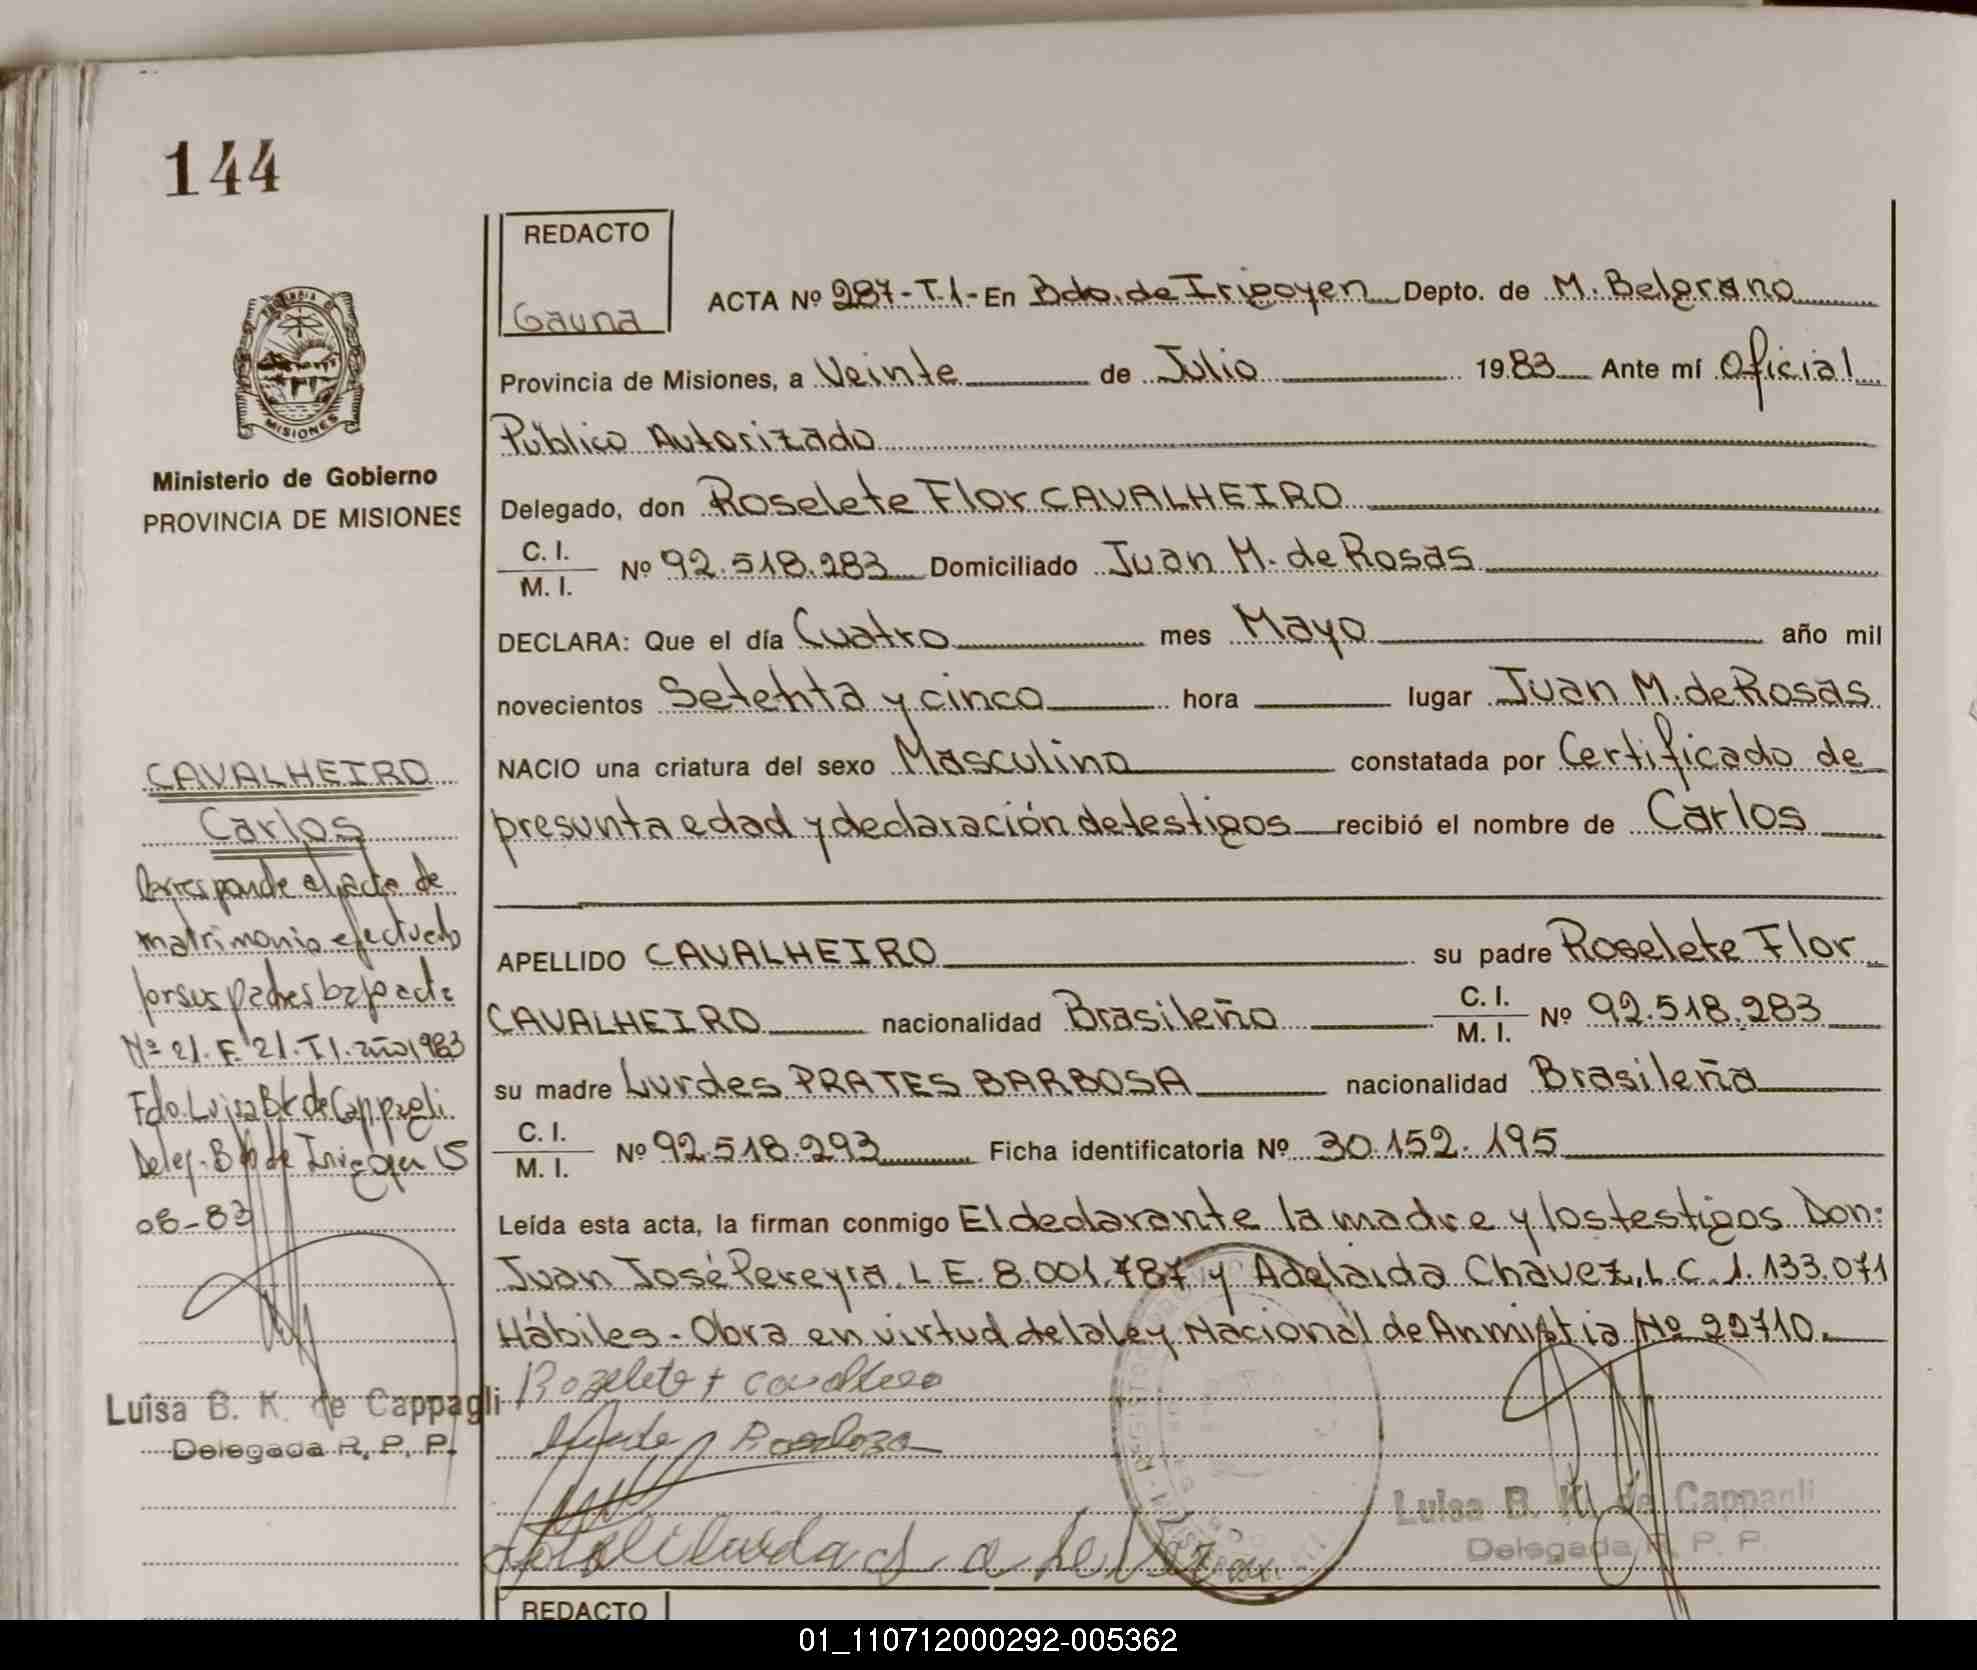 144
REDACTO
Gauna
ACTA Nº 287-T.1.- En Bdo. de Irigoyen Depto. de M. Belgrano
Provincia de Misiones, a Veinte de Julio 1983 Ante mí Oficial
Público Autorizado
Delegado, don Roselete Flor CAVALHEIRO
C. I.
M. I. Nº 92.518.283 Domiciliado Juan M. de Rosas
DECLARA: Que el día Cuatro mes Mayo año mil
novecientos Setenta y cinco hora lugar Juan M. de Rosas
NACIO una criatura del sexo Masculino constatada por Certificado de
presunta edad y declaración de testigos recibió el nombre de Carlos
APELLIDO CAVALHEIRO su padre Roselete Flor
CAVALHEIRO nacionalidad Brasileño C. I.
M. I. Nº 92.518.283
su madre Lurdes PRATES BARBOSA nacionalidad Brasileña
C. I.
M. I. Nº 92.518.293 Ficha identificatoria Nº 30.152.195
Leída esta acta, la firman conmigo El declarante la madre y los testigos Don:
Juan José Pereyra. L E. 8.001.787 y Adelaida Chávez, L.C. 1.133.071
Hábiles - Obra en virtud de la ley Nacional de Anmistia Nº 22710.
Luisa B. K. de Cappagli
Delegada R. P. P.
MISIONES
Ministerio de Gobierno
PROVINCIA DE MISIONES
CAVALHEIRO
Carlos
Corresponde al acta de
matrimonio efectuado
por sus padres bajo acta
Nº 21. F. 21. T I. año 1983
Fdo. Luisa B K de Cappagli
Deleg. Bdo de Irigoyen 15
08-83
Luisa B. K. de Cappagli
Delegada R. P. P.
REDACTO
01_110712000292-005362